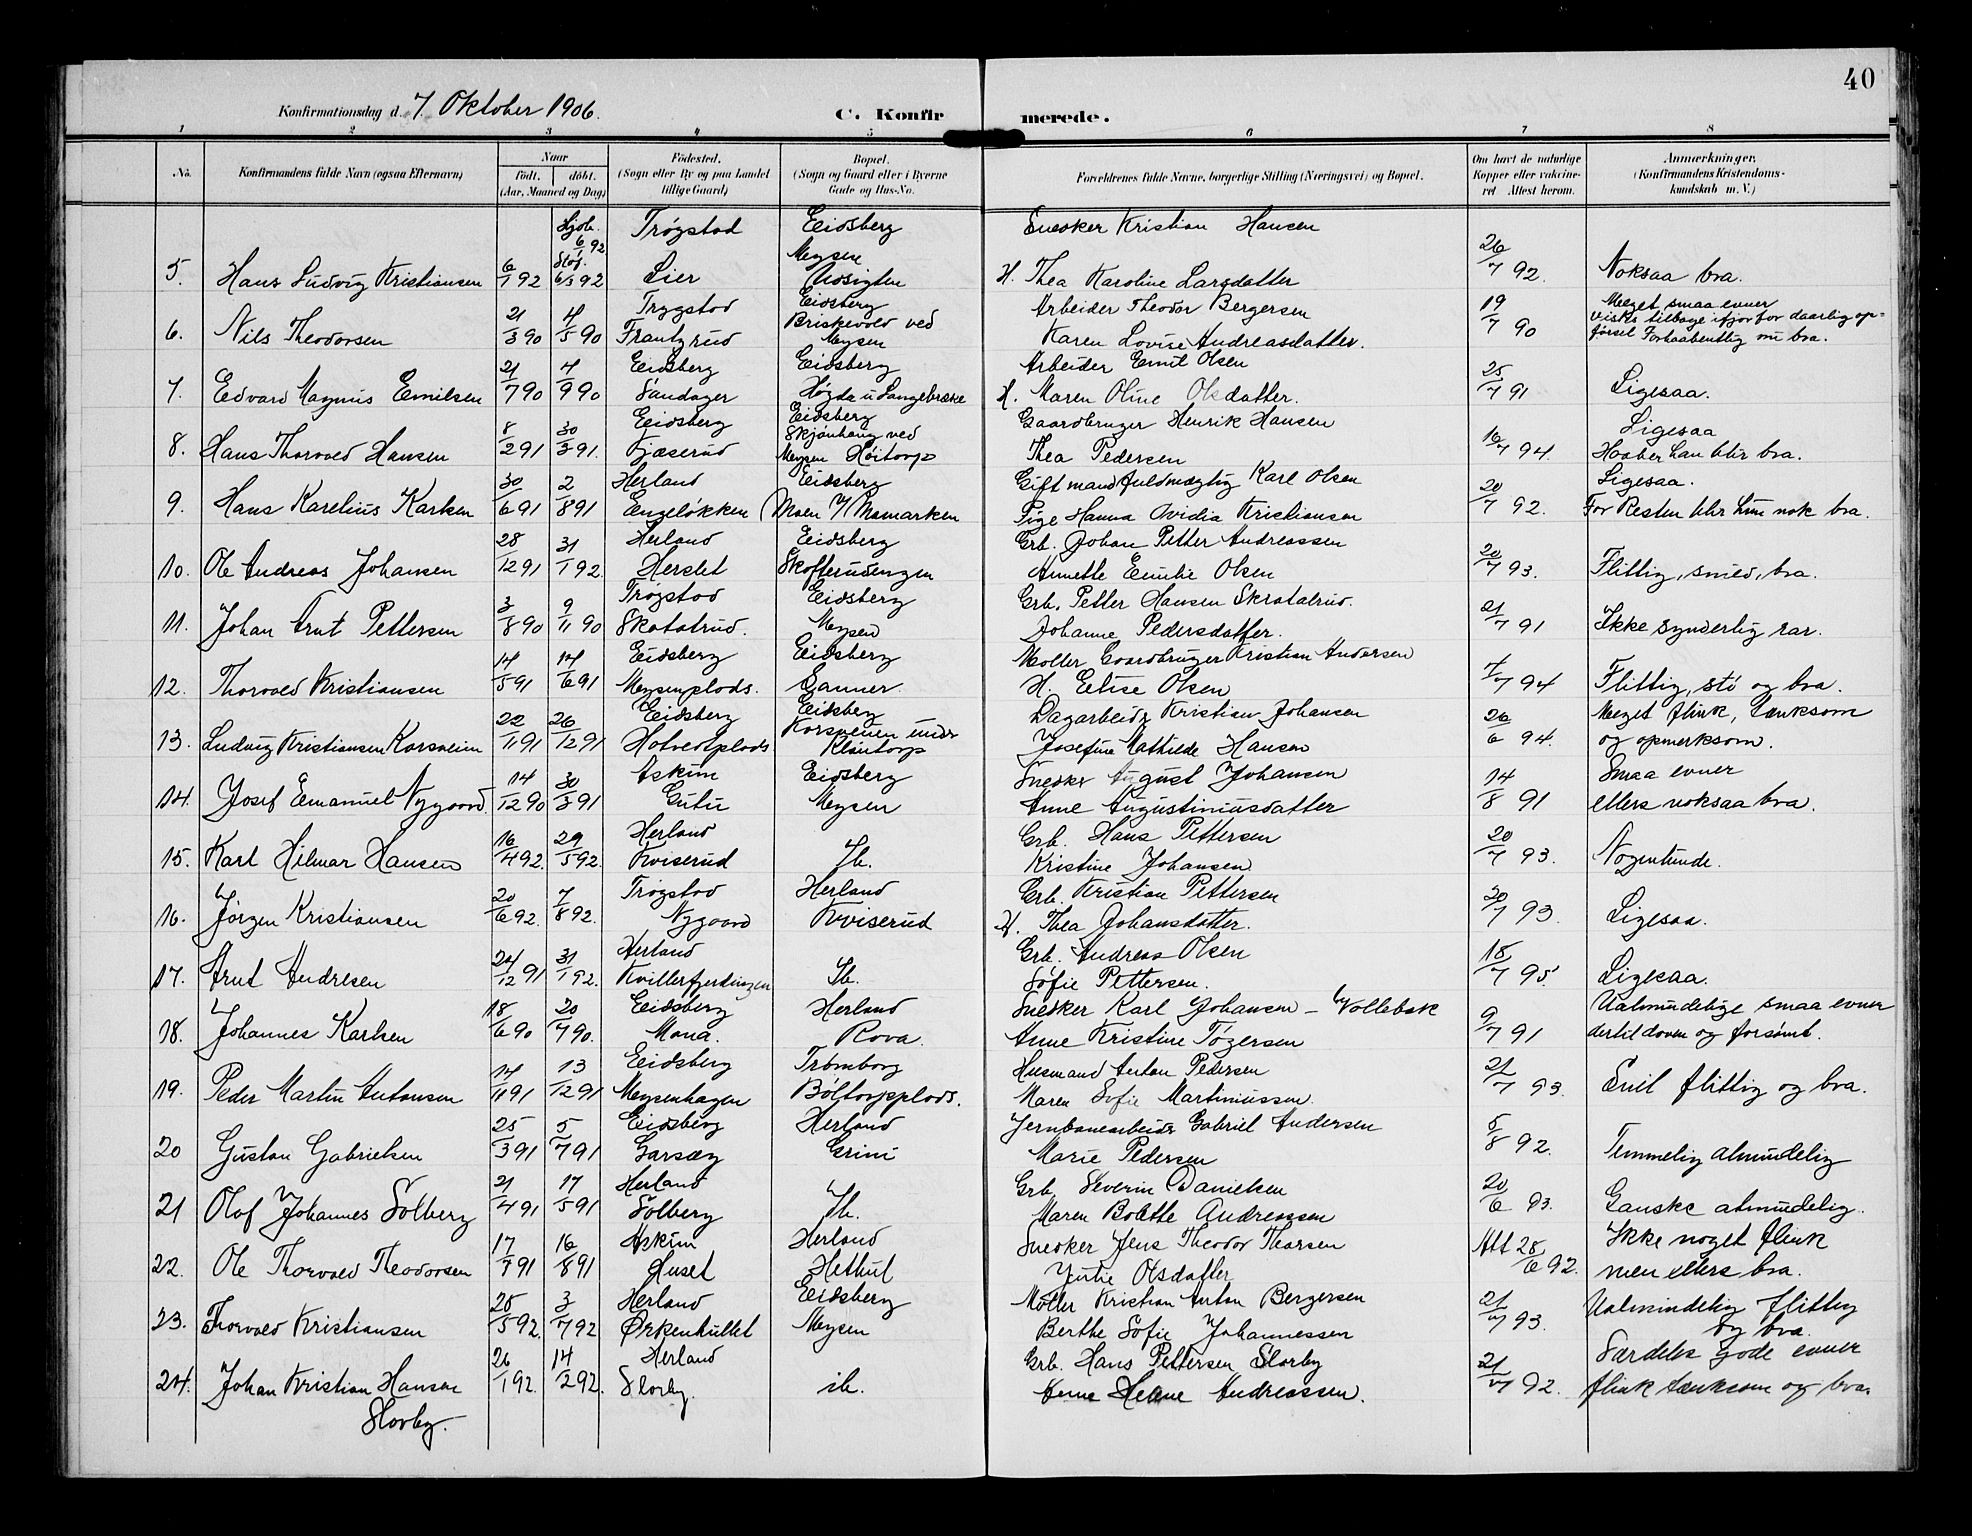 40
Konfirmationsdag d. 7. Oktober 1906.
C. Konfirmerede.
1 2 3 4 5 6 7 8
No. Konfirmandens fulde Navn (ogsaa Efternavn) Naar født. døbt. (Aar, Maaned og Dag) Fødested. (Sogn eller By og paa Landet tillige Gaard) Bopæl. (Sogn og Gaard eller i Byerne Gade og Hus-No. Forældrenes fulde Navne, borgerlige Stilling (Næringsvei) og Bopæl. Om havt de naturlige Kopper eller vaccineret Attest herom. Anmærkninger, (Konfirmandens Kristendomskundskab m. V.)
Hjdb. 6/1 92 Trøgstad Eidsberg Snedker Kristian Hansen
5. Hans Ludvig Kristiansen 6/1 92 Støf. 6/3 92 Lier Mysen Udsigten H. Thea Karoline Larsdatter 26/7 92. Noksaa bra.
Trygstad Eidsberg Arbeider Theodor Bergersen Meget smaa evner
6. Nils Theodorsen 21/3 90 4/5 90 Frantzrud Briskevold ved Mysen Karen Lovise Andreasdatter. 19/7 90 vistes tilbage ifjor for daarlig opførsel Forhaabentlig nu bra.
Eidsberg Eidsberg Arbeider Emil Olsen
7. Edvard Magnus Emilsen 21/7 90 4/9 90 Sandager Høgda u Langebrække H. Maren Oline Olsdatter. 25/7 91 Ligesaa.
Eidsberg Eidsberg Gaardbruger Henrik Hansen Ligesaa
8. Hans Thorvald Hansen 8/2 91 30/3 91. Kjæserud Skjønhaug ved Mysen Høitorp Thea Pedersen 16/7 94. Haaber han blir bra.
Herland Eidsberg Gift mand fuldmægtig Karl Olsen Ligesaa.
9. Hans Karelius Karlsen 30/6 91 2/8 91 Engeløkken Moen i/ Momarken Pige Hanna Ovidia Kristiansen 20/7 92. For Resten blir hun nok bra.
Herland Eidsberg Grb. Johan Petter Andreassen
10. Ole Andreas Johansen 28/12 91 31/1 92. Herslet Skofterudengen Annette Emilie Olsen 20/7 93. Flittig, snild, bra.
Trøgstad Eidsberg Grb. Petter Hansen Skratalrud.
11. Johan Arnt Pettersen 3/8 90 9/11 90 Skatatrud. Mysen Johanne Pedersdatter. 21/7 91 Ikke synderlig rar.
Eidsberg Eidsberg Møller Gaardbruger Kristian Andersen
12. Thorvald Kristiansen 14/5 91 14/6 91 Mysenplads. Sanner. H. Elise Olsen 7/7 94 Flittig, stø og bra.
Eidsberg Eidsberg Dagarbeider Kristian Johansen Meget flink, tænksom
13. Ludvig Kristiansen Korsveien 22/11 91 26/12 91 Hotvedtplads Korsveien under Kløntorp Josefine Mathilde Hansen 26/6 94. og opmerksom.
Askim Eidsberg Snedker August Johansen Smaa evner
14. Josef Emanuel Nygaard 14/12 90 30/3 91 Gutu Mysen Anne Augustiniusdatter 14/8 91 ellers noksaa bra.
Herland Grb. Hans Pettersen
15. Karl Hilmar Hansen 16/4 92. 29/5 92. Kviserud Ib. Kristine Johansen 20/7 93. Nogenlunde.
Trøgstad Herland Grb. Kristian Pettersen
16. Jørgen Kristiansen 20/6 92. 7/8 92. Nygaard Kviserud H. Thea Johansdatter. 20/7 93. Ligesaa.
Herland Grb. Andreas Olsen
17. Arnt Andresen 24/12 91 31/1 92. Kvillerfjerdingen Ib. Sofie Pettersen. 18/7 95 Ligesaa.
Eidsberg Herland Snedker Karl Johansen - Vollebæk Ualmindelige smaa evner
18. Johannes Karlsen 18/6 90 20/7 90. Mona. Rova. Anne Kristine Tøgersen 9/7 91 dertil doven og forsømt.
Eidsberg Trømborg Husmand Anton Pedersen
19. Peder Martin Antonsen 14/11 91 13/12 91 Mysenhagen Bøltorpplads. Maren Sofie Martiniussen. 21/7 93. Snil flittig og bra.
Eidsberg Herland Jernbanearbeider Gabriel Andersen
20 Gustav Gabrielsen 25/3 91 5/7 91 Garsæg Grini Marie Pedersen 5/8 92. Temmelig almindelig
Herland Grb. Severin Danielsen
21 Olaf Johannes Solberg 21/4 91 17/5 91 Solberg Ib. Maren Bolette Andreassen 20/6 93. Ganske almindelig.
Askim Herland Snedker Jens Theodor Thorsen Ikke noget flink
22. Ole Thorvald Theodorsen 17/7 91 16/8 91 Huset Hethul Julie Olsdatter Att 28/6 92. men ellers bra.
Herland Eidsberg Møller Kristian Anton Bergersen Ualmindelig flittig
23. Thorvald Kristiansen 28/5 92. 3/7 92 Ørkenhullet Mysen Berthe Sofie Johannessen 21/7 93. og bra.
Herland Grb. Hans Pettersen Slorby Særdeles gode evner
24. Johan Kristian Hansen 26/1 92. 14/2 92. Slorby. ib. Anne Helene Andreassen. 21/7 92. flink tænksom og bra.
Slorby.